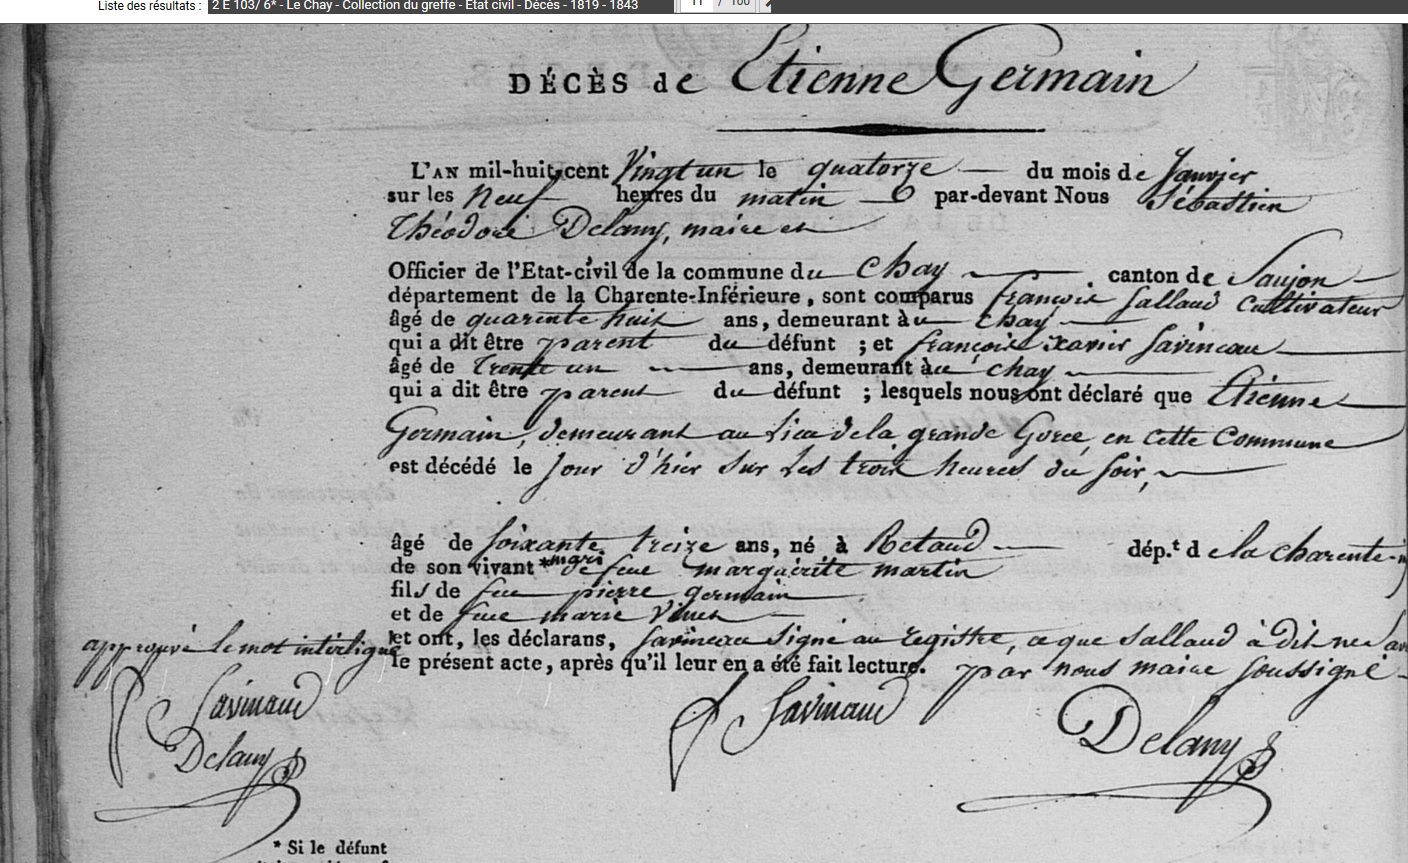 Liste des résultats : 2 E 103/ 6* - Le Chay - Collection du greffe - Etat civil - Décès - 1819 - 1843 11 / 100
DÉCÈS de Etienne Germain
L'AN mil-huit-cent Vingt un le quatorze du mois de Janvier
sur les Neuf heures du matin par-devant Nous Sébastien
Théodore Delany, maire et
Officier de l'Etat-civil de la commune du Chay canton de Saujon
département de la Charente-Inférieure, sont comparus françois Sallaud cultivateur
âgé de quarente huit ans, demeurant àu chay
qui a dit être parent du défunt ; et françois xavier Savineau
âgé de trente un ans, demeurant àu chay
qui a dit être parent du défunt ; lesquels nous ont déclaré que Etienne
Germain, demeurant au Lieu de la grande Gorce en cette Commune
est décédé le Jour d'hier sur Les trois heures du soir,
âgé de soixante treize ans, né à Retaud dép.t de la charente-
de son vivant * mari de feue marguérite martin
fils de feu pierre germain
et de feue marie
et ont, les déclarans, Savineau signé au registre, ce que Sallaud à dit ne
approuvé le mot interligné
le présent acte, après qu'il leur en a été fait lecture. par nous maire soussigné
Savinaud Savinaud
Delany Delany
* Si le défunt